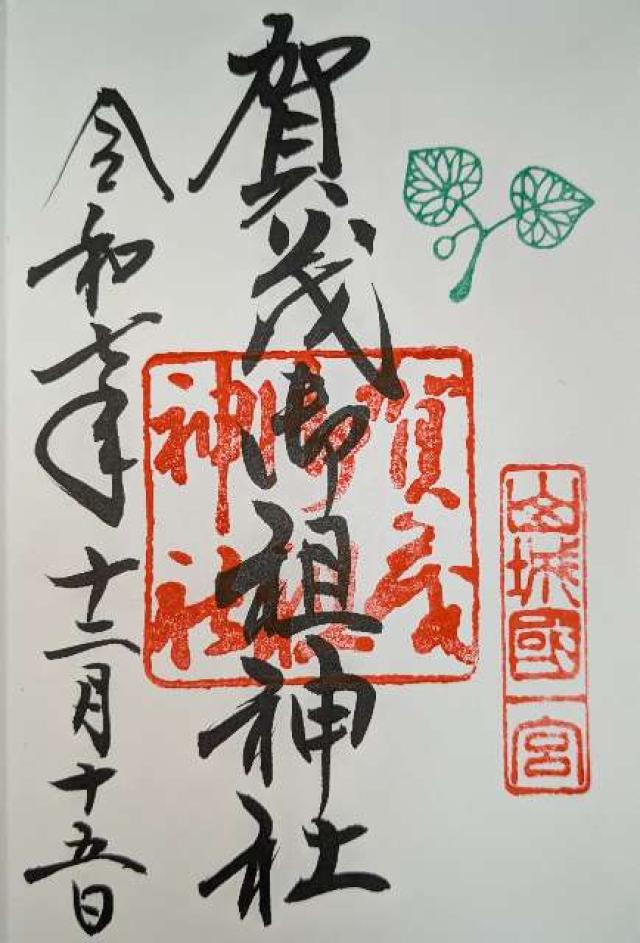 山城國一宮
賀茂御祖神社
賀茂御祖神社
令和七年十二月十五日